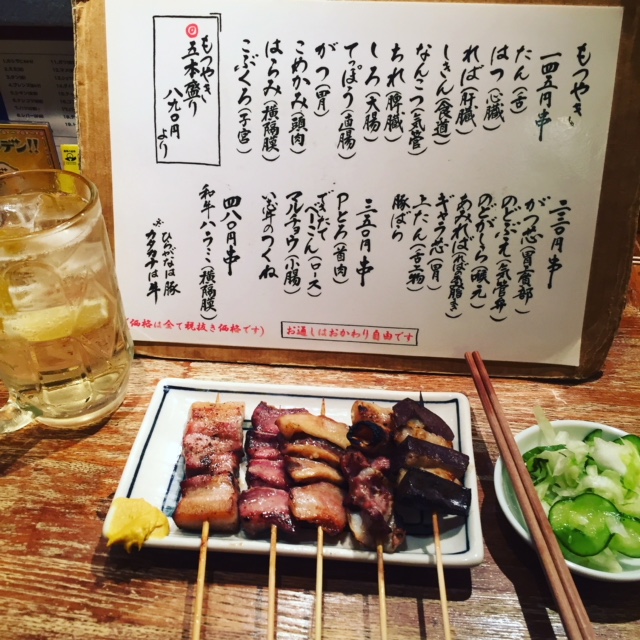 もつやき
一四五円串
たん(舌)
はつ(心臓)
ればー(肝臓)
しきん(食道)
なんこつ(気管)
ちれ(脾臓)
しろ(大腸)
てっぽう(直腸)
がつ(胃)
こめかみ(頭肉)
はらみ(横隔膜)
こぶくろ(子宮)
もつやき
五本盛り
八九〇円
より
二三〇円串
がつ芯
のどぶえ
のどがしら(喉元)
あみれば
ギャラ芯(胃)
上たん
豚ばら
三三〇円串
Pとろ(首肉)
マルチョウ(小腸)
つくね
四八〇円串
和牛ハラミ(横隔膜)
※ひらがなは豚
カタカナは牛
(価格は全て税抜き価格です)
お通しはおかわり自由です
デン!!